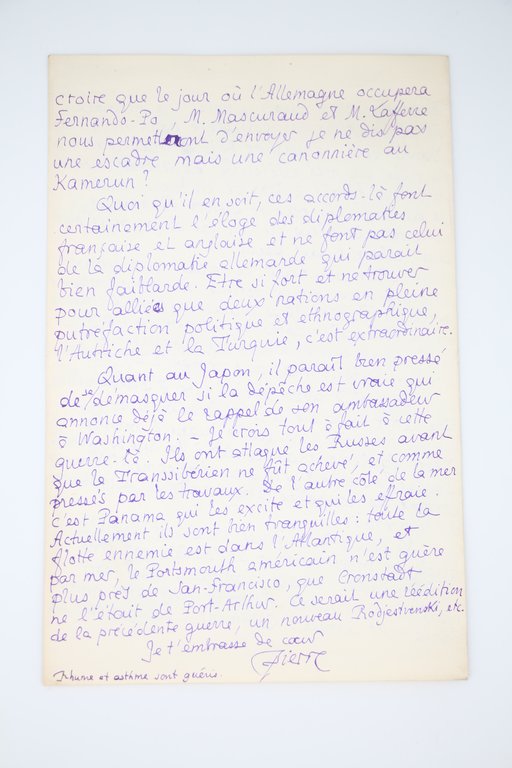 croire que le jour où l'Allemagne occupera
Fernando-Po, M. Mascuraud et M. Lafferre
nous permettront d'envoyer je ne dis pas
une escadre mais une canonnière au
Kamerun ?
Quoi qu'il en soit, ces accords-là font
certainement l'éloge des diplomaties
française et anglaise et ne font pas celui
de la diplomatie allemande qui paraît
bien faiblarde. Etre si fort et ne trouver
pour alliés que deux nations en pleine
putréfaction politique et ethnographique,
l'Autriche et la Turquie, c'est extraordinaire.
Quant au Japon, il paraît bien pressé
de se démasquer si la dépêche est vraie qui
annonce déjà le rappel de son ambassadeur
à Washington. — Je crois tout à fait à cette
guerre-là. Ils ont attaqué les Russes avant
que le Transsibérien ne fût achevé, et comme
pressés par les travaux. De l'autre côté de la mer
c'est Panama qui les excite et qui les effraie.
Actuellement ils sont bien tranquilles : toute la
flotte ennemie est dans l'Atlantique, et
par mer, le Portsmouth américain n'est guère
plus près de San-Francisco, que Cronstadt
ne l'était de Port-Arthur. Ce serait une réédition
de la précédente guerre, un nouveau Rodjestvenski, etc.
Je t'embrasse de cœur
Pierre
Rhume et asthme sont guéris.